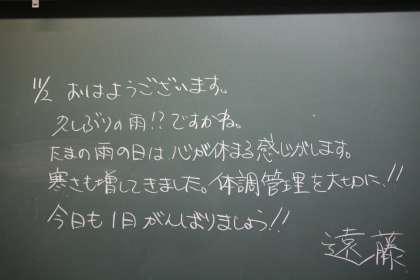 11/2 おはようございます。
久しぶりの雨!?ですかね。
たまの雨の日は心が休まる感じがします。
寒さも増してきました。体調管理を大切に!!
今日も1日がんばりましょう!!
遠藤